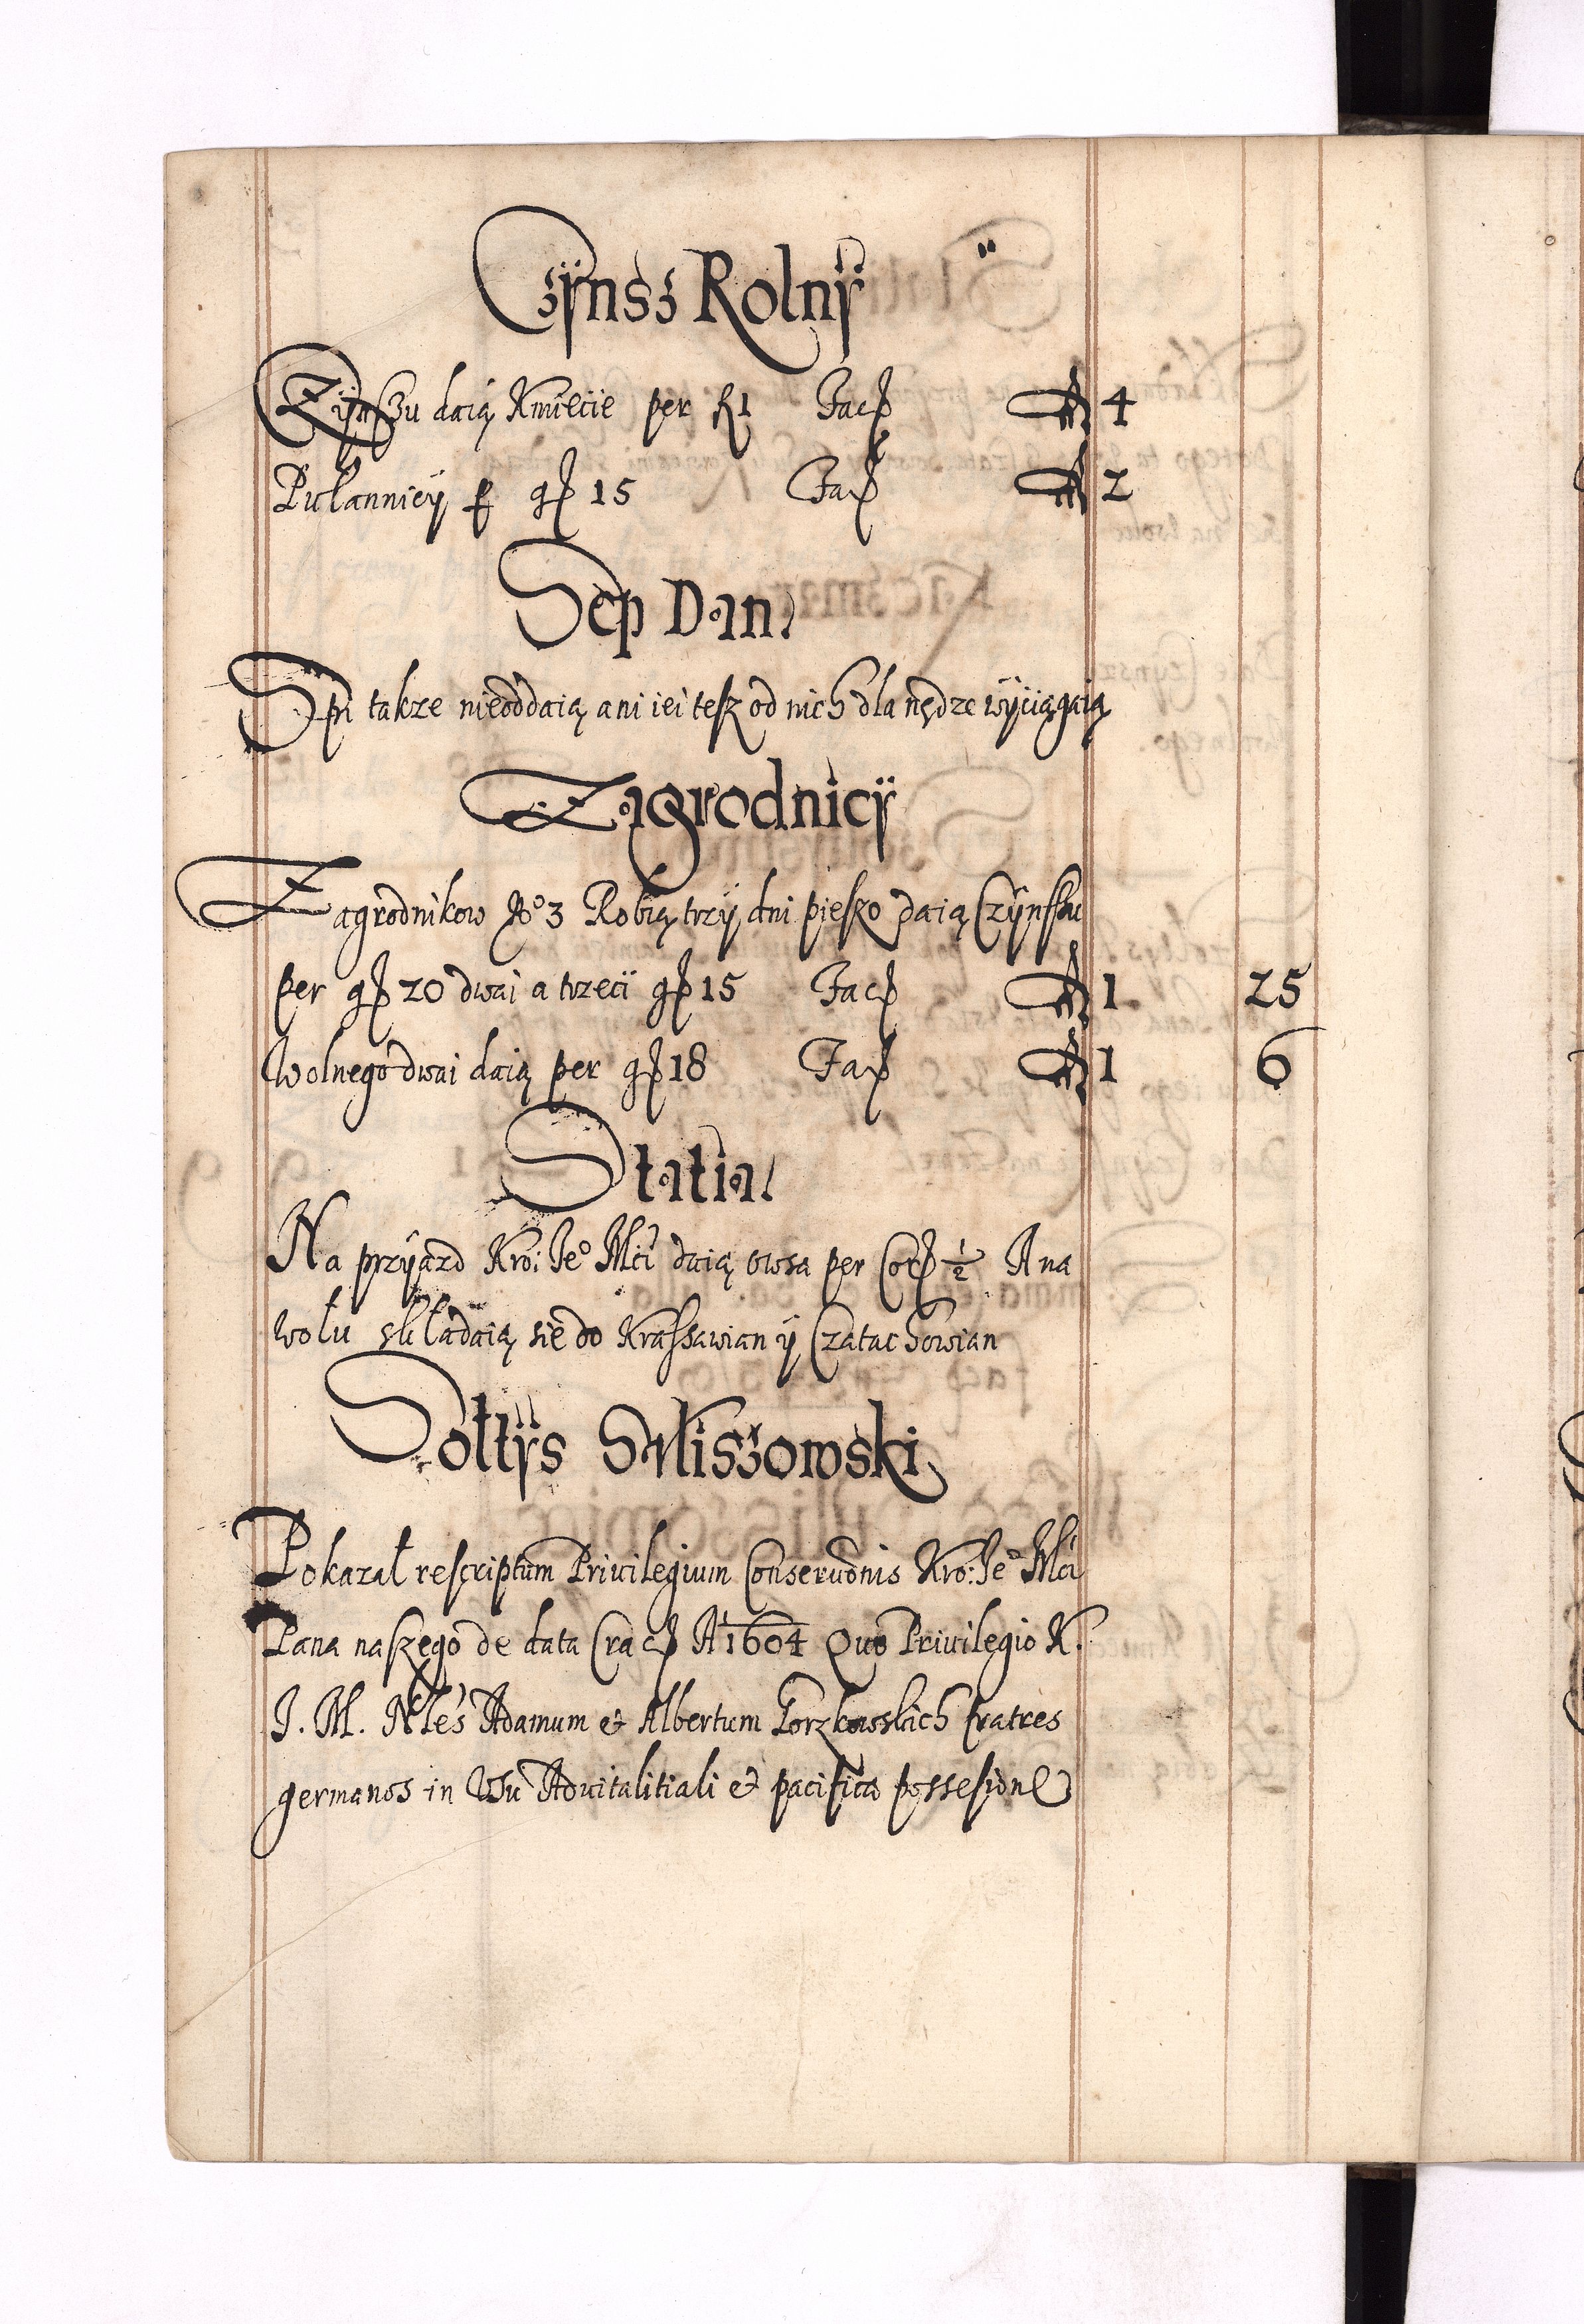 Czÿnsz Rolnÿ
Czÿnszu daią Kmiecie per fl 1 Fac fl 4
Pułannicÿ per gr 15 Fac fl 2
Sep Dan
Spi takze nieoddaią ani iei tesz od nich dla nędze wÿciągaią
Zagrodnicÿ
Zagrodnikow No 3 Robią trzÿ dni pieszo daią Czÿnszu
per gr 20 dwai a trzeci gr 15 Fac fl 1 25
Wolnego dwai daią per gr 18 Fac fl 1 6
Statia
Na przÿazd Kro: Ieo Mci daią owsa per Cor ½ A na
wołu składaią sie do Krassawian ÿ Czatachowian
Sołtÿs Suliszowski
Pokazał rescriptum Privilegium Conseruonis Kro: Ieo Mci
Pana naszego de data Crac A 1604 Quo Privilegio K.
I. M. Nbles Adamum et Albertum Gorzkowskich fratres
germanos in Vsu Aduitalitiali et pacifica possesione